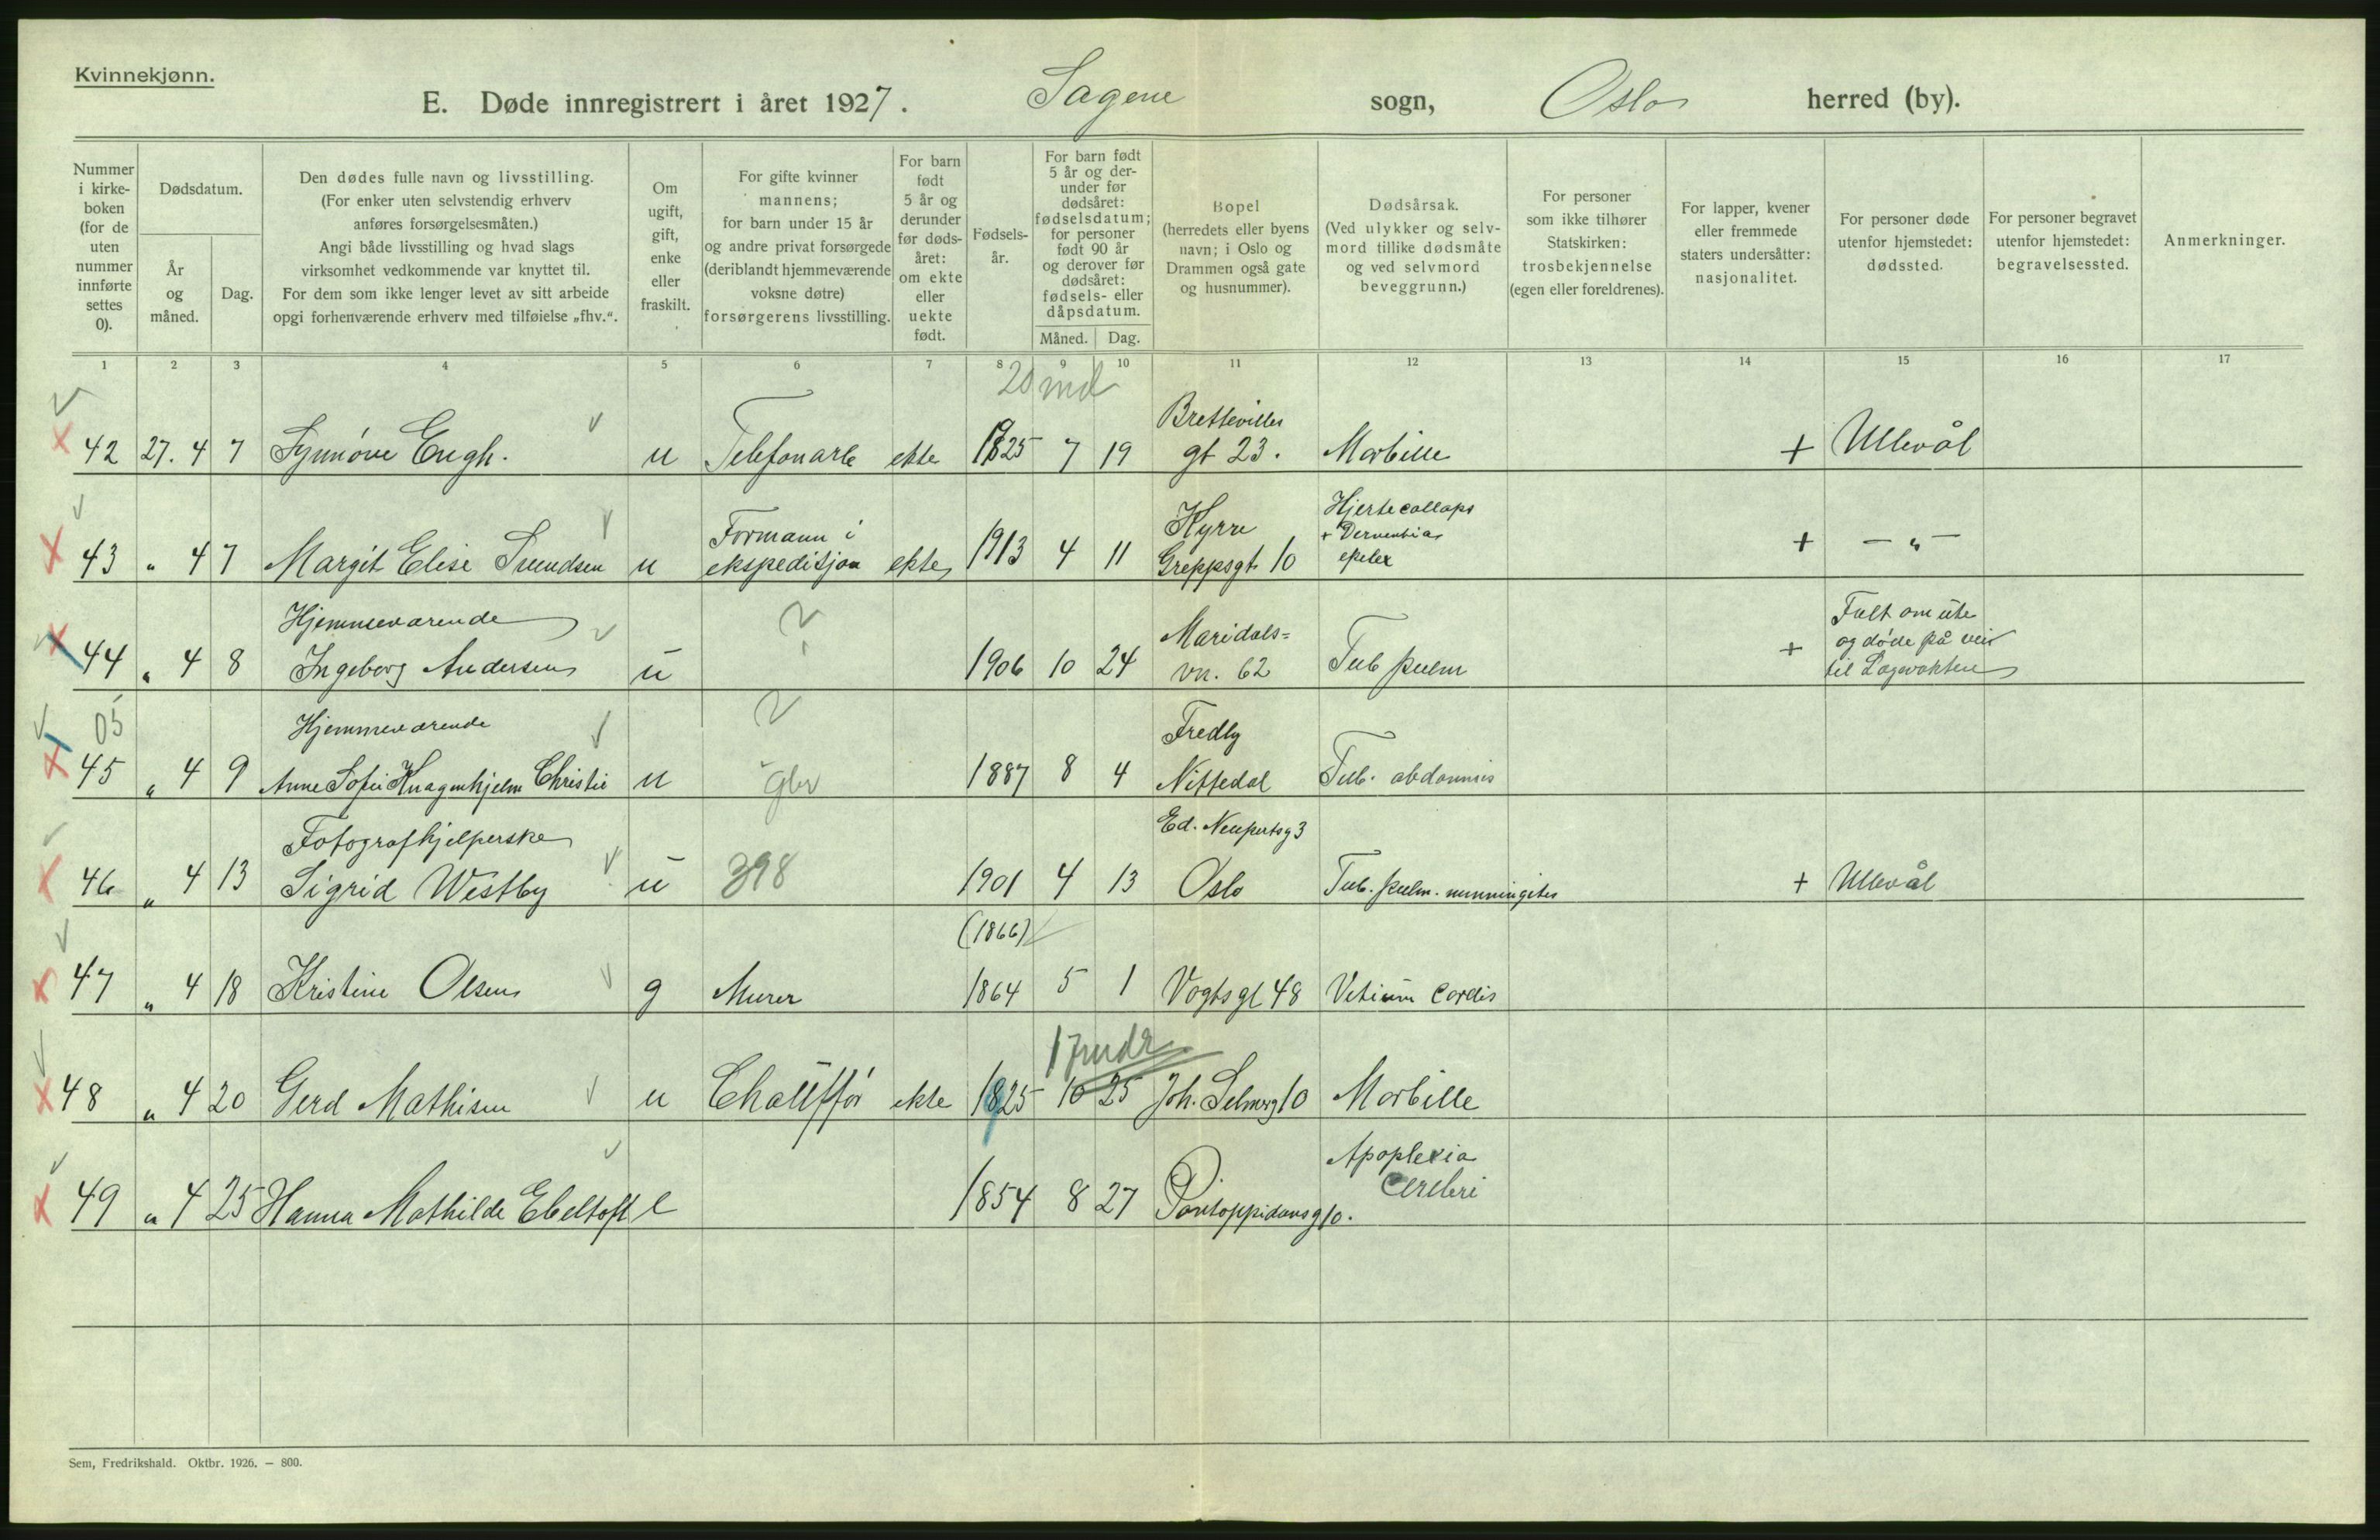 Kvinnekjønn.
E. Døde innregistrert i året 1927. Sagene sogn, Oslo herred (by).
Nummer i kirke-boken (for de uten nummer innførte settes 0).
Dødsdatum.
År og måned.
Dag.
Den dødes fulle navn og livsstilling.
(For enker uten selvstendig erhverv
anføres forsørgelsesmåten.)
Angi både livsstilling og hvad slags
virksomhet vedkommende var knyttet til.
For dem som ikke lenger levet av sitt arbeide
opgi forhenværende erhverv med tilføielse „fhv.“.
Om ugift, gift, enke eller fraskilt.
For gifte kvinner
mannens;
for barn under 15 år
og andre privat forsørgede
(deriblandt hjemmeværende
voksne døtre)
forsørgerens livsstilling.
For barn født 5 år og derunder før døds-året: om ekte eller uekte født.
Fødsels-år.
For barn født 5 år og der-under før dødsåret: fødselsdatum; for personer født 90 år og derover før dødsåret: fødsels- eller dåpsdatum.
Måned. Dag.
Bopel
(herredets eller byens
navn; i Oslo og
Drammen også gate
og husnummer).
Dødsårsak.
(Ved ulykker og selv-
mord tillike dødsmåte
og ved selvmord
beveggrunn.)
For personer
som ikke tilhører
Statskirken:
trosbekjennelse
(egen eller foreldrenes).
For lapper, kvener
eller fremmede
staters undersåtter:
nasjonalitet.
For personer døde
utenfor hjemstedet:
dødssted.
For personer begravet
utenfor hjemstedet:
begravelsessted.
Anmerkninger.
1 2 3 4 5 6 7 8 9 10 11 12 13 14 15 16 17
20 md
Brettevilles
42 27. 4 7 Synnøve Engh. u Telefonarb ekte 1925 7 19 gt 23. Morbille + Ullevål
Formann i Kyrre Hjertecollaps
43 " 4 7 Margit Elise Svendsen u ekspedisjon ekte 1913 4 11 Greppsgt. 10 + — " —
Hjemmeværende ? Maridals= Falt om ute
og døde på vei
44 " 4 8 Ingeborg Andersen u 1906 10 24 vn. 62 Tub pulm + til Legevakten
05 Hjemmeværende Fredly
45 " 4 9 Anne Sofie Knagenhjelm Christie u 1887 8 4 Nittedal Tub. abdominis
Fotografhjelperske Ed. Neupertsg 3
46 " 4 13 Sigrid Westby u 398 1901 4 13 Oslo Tub. pulm. menningites + Ullevål
(1866)
47 " 4 18 Kristine Olsen g Murer 1864 5 1 Vogtsgt 48 Vitium Cordis
17 mdr
48 " 4 20 Gerd Mathisen u Chauffør ekte 1925 10 25 Joh. Selmersg 10 Morbille
Apoplexia
49 " 4 25 Hanna Mathilde Ebeltoft e 1854 8 27 Pontoppidansg 10. Cerebri
Sem, Fredrikshald. Oktbr. 1926. — 800.